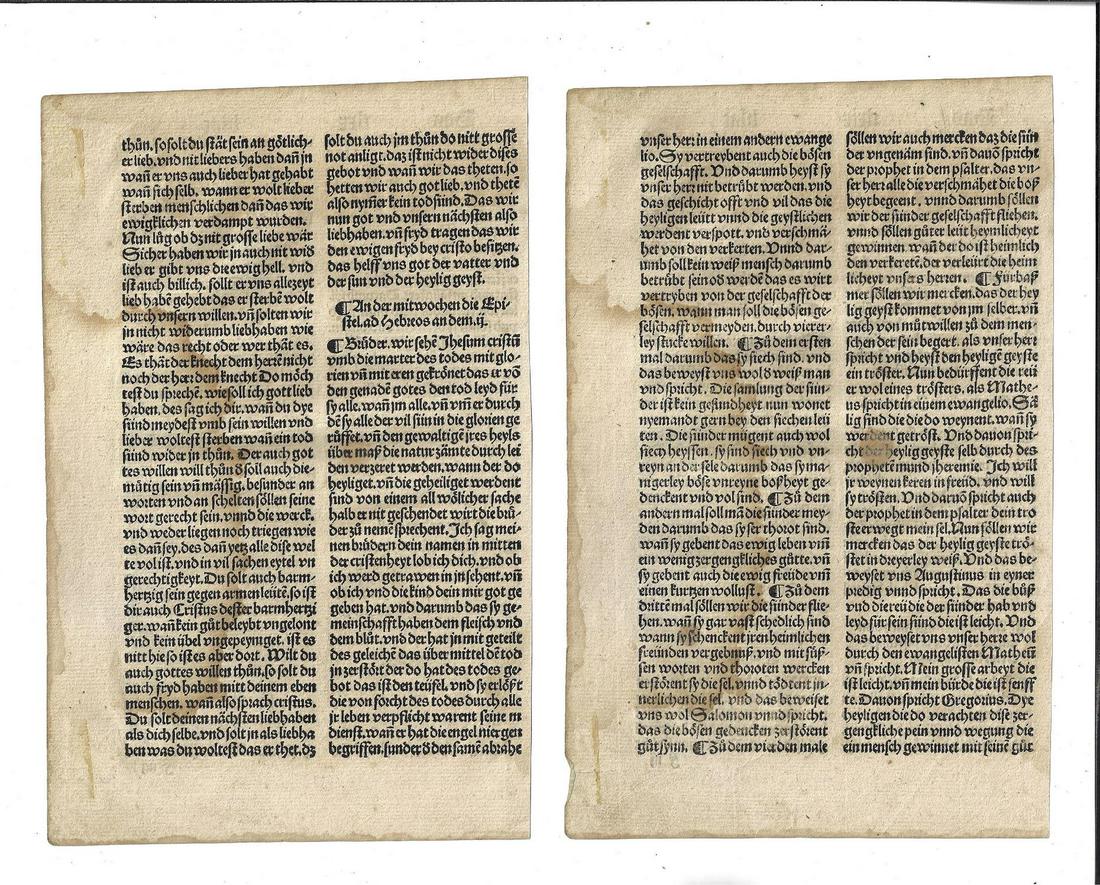 thůn. so solt du stät sein an götlich-
er lieb. vnd nit liebers haben dañ jn
wañ er vns auch lieber hat gehabt
wañ sich selb. wann er wolt lieber
sterben menschlichen dañ das wir
ewigklichen verdampt wurden.
Nun lůg ob dz nit grosse liebe wär
Sicher haben wir jn auch nit wid
lieb er gibt vns die ewig hell. vnd
ist auch billich. sollt er vns allezeyt
lieb habē gehebt das er sterbē wolt
durch vnsern willen. vñ solten wir
jn nicht widerumb liebhaben wie
wäre das recht oder wer thät es.
Es thät der knecht dem herrē nicht
noch der herr dem knecht Do möch
test du sprechē. wie soll ich gott lieb
haben. des sag ich dir. wañ du dye
sünd meydest vmb sein willen vnd
lieber woltest sterben wañ ein tod
sünd wider jn thůn. Der auch got
tes willen will thůn d soll auch die-
mütig sein vñ mässig. besunder an
worten vnd an schelten söllen seine
wort gerecht sein. vnnd die werck.
vnd weder liegen noch triegen wie
es dañ sey. des dañ yetz alle dise wel
te vol ist. vnd in vil sachen eytel vn
gerechtigkeyt. Du solt auch barm-
hertzig sein gegen armen leütē. so ist
dir auch Cristus dester barmhertzi
ger. wañ kein gůt beleybt vngelont
vnd kein übel vngepeyniget. ist es
nitt hie so ist es aber dort. Wilt du
auch gottes willen thůn. so solt du
auch fryd haben mitt deinem eben
menschen. wañ also sprach cristus.
Du solt deinen nächsten liebhaben
als dich selbe. vnd solt jn als liebha
ben was du woltest das er thet. dz
solt du auch jm thůn do nitt grosse
not anligt. daz ist nicht wider dises
gebot vnd wañ wir das theten. so
hetten wir auch got lieb. vnd thetē
also nym̄er kein todsünd. Das wir
nun got vnd vnsern nächsten also
liebhaben. vñ fryd tragen das wir
den ewigen fryd bey cristo besitzen.
das helff vns got der vatter vnd
der sun vnd der heylig geyst.
¶ An der mitwochen die Epi-
stel. ad Hebreos an dem. ij.
¶ Brüder. wir sehē Jhesum cristū
vmb die marter des todes mit glo-
rien vñ mit eren gekrönet das er vō
den genadē gotes den tod leyd für
sy alle. wañ jm alle. vñ vm̄ er durch
dē sy alle der vil sün in die glorien ge
rüffet. vñ den gewaltigē jres heyls
über maß die natur zämte durch lei
den verzeret werden. wann der do
heyliget. vñ die geheiliget werdent
sind von einem all wölicher sache
halb er nit geschendet wirt die brü-
der zů nenē sprechent. Ich sag mei-
nen brüdern dein namen in mitten
der cristenheyt lob ich dich. vnd ob
ich werd getrawen in jn sehent. vñ
ob ich vnd die kind dein mir got ge
geben hat. vnd darumb das sy ge-
meinschafft haben dem fleisch vnd
dem blůt. vnd der hat jn mit geteilt
des geleichē das über mittel dē tod
jn zerstört der do hat des todes ge-
bot das ist den teüfel. vnd sy erlößt
die von forcht des todes durch alle
jr leben verpflicht warent seine m
dienst. wañ er hat die engel niergen
begriffen. sunder d den samē abrahe
vnser herr in einem andern ewange
lio. Sy vertreybent auch die bösen
geselschafft. Vnd darumb heyst sy
vnser herr nit betrübt werden. vnd
das geschicht offt vnd vil das die
heyligen leütt vnnd die geystlichen
werdent verspott. vnd verschmä-
het von den verkerten. Vnnd dar-
umb soll kein weiß mensch darumb
betrübt sein ob werdē das es wirt
vertryben von der geselschafft der
bösen. wann man soll die bösen ge-
selschafft vermeyden. durch vierer-
ley stucke willen. ¶ Zů dem ersten
mal darumb das sy siech sind. vnd
das beweyst vns wol d weiß man
vnd spricht. Die samlung der sün-
der ist kein gesundheyt nun wonet
nyemandt gern bey den siechen leü
ten. Die sünder mügent auch wol
siech heyssen. sy sind siech vnd vn-
reyn an der sele darumb das sy ma-
nigerley böse vnreyne boßheyt ge-
denckent vnd vol sind. ¶ Zů dem
andern mal soll mā die sünder mey-
den darumb das sy ser thorot sind.
wañ sy gebent das ewig leben vm̄
ein wenig zergengkliches gůtte. vñ
sy gebent auch die ewig freüde vm̄
einen kurtzen wollust. ¶ Zů dem
drittē mal söllen wir die sünder flie-
hen. wañ sy gar vast schedlich sind
wann sy schenckent jren heimlichen
freünden vergebnuß. vnd mit süß-
sen worten vnd thoroten wercken
erstörent sy die sel. vnnd tödtent jn-
nerlichen die sel. vnd das beweiset
vns wol Salomon vnnd spricht.
das die bösen gedencken zerstörent
gůt synn. ¶ Zů dem vierden male
söllen wir auch mercken daz die sün
der vngenäm sind. vñ dauō spricht
der prophet in dem psalter. das vn-
ser herr alle die verschmähet die boß
heyt begeent. vnnd darumb söllen
wir der sünder geselschafft fliehen.
vnnd söllen gůter leüt heymlicheyt
gewinnen. wañ der do ist heimlich
den verkeretē. der verleürt die heim
licheyt vnsers herren. ¶ Fürbaß
mer söllen wir mercken. das der hey
lig geyst kommet von jm selber. vñ
auch von můtwillen zů dem men-
schen der sein begert. als vnser herr
spricht vnd heyst den heyligē geyste
ein tröster. Nun bedürffent die reü
er wol eines trösters. als Mathe-
us spricht in einem ewangelio. Sä
lig sind die die do weynent. wañ sy
werdent getröst. Vnd dauon spri-
cht der heylig geyste selb durch des
prophetē mund jheremie. Ich will
jr weynen keren in freüd. vnd will
sy trösten. Vnd daruō spricht auch
der prophet in dem psalter dein tro
ste erwegt mein sel. Nun söllen wir
mercken das der heylig geyste trö-
stet in dreyerley weiß. Vnd das be-
weyset vns Augustinus in eyner
predig vnnd spricht. Das die bůß
vnd die reü die der sünder hab vnd
leyd für sein sünd die ist leicht. Vnd
das beweyset vns vnser herre wol
durch den ewangelisten Matheū
vñ spricht. Mein grosse arbeyt die
ist leicht. vñ mein bürde die ist senff
te. Dauon spricht Gregorius. Dye
heyligen die do verachten dise zer-
gengkliche pein vnnd wegung die
ein mensch gewinnet mit seinē gůt